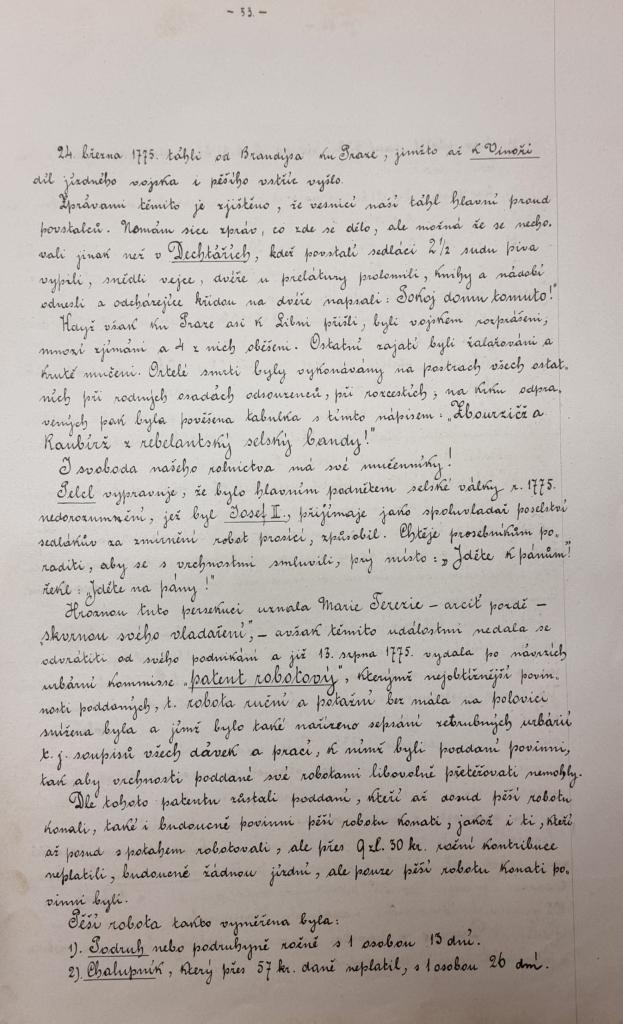 - 53. -
24. března 1775. táhli od Brandýsa ku Praze, jimžto až k Vinoři
díl jízdného vojska i pěšího vstříc vyšlo.
Zprávami těmito je zjištěno, že vesnicí naší táhl hlavní proud
povstalců. Nemám sice zpráv, co zde se dělo, ale možná že se necho-
vali jinak než v Dechtářích, kdež povstalí sedláci 2 1/2 sudu piva
vypili, snědli vejce, dvéře u prelátury prolomili, knihy a nádobí
odnesli a odcházejíce křídou na dvéře napsali: Pokoj domu tomuto!"
Když však ku Praze asi k Libni přišli, byli vojskem rozprášeni,
mnozí zjímáni a 4 z nich oběšeni. Ostatní zajatí byli žalařováni a
krutě mučeni. Ortelé smrti byly vykonávány na postrach všech ostat-
ních při rodných osadách odsouzenců, při rozcestích; na krku odpra-
vených pak byla pověšena tabulka s tímto nápisem: „Zbouržičž a
Raubírž z rebelantský selský bandy!"
I svoboda našeho rolnictva má své mučenníky!
Pelcl vypravuje, že bylo hlavním podnětem selské války r. 1775.
nedorozumnění, jež byl Josef II., přijímaje jako spoluvladař poselství
sedlákův za zmírnění robot prosící, způsobil. Chtěje prosebníkům po-
raditi, aby se s vrchnostmi smluvili, prý místo: „Jděte k pánům"!
řekl: „Jděte na pány!"
Hroznou tuto persekuci uznala Marie Terezie – arciť pozdě –
„skvrnou svého vladaření", – avšak těmito událostmi nedala se
odvrátiti od svého podnikání a již 13. srpna 1775. vydala po návrzích
urbární kommisse „patent robotový", kterýmž nejobtížnější povin-
nosti poddaných, t. robota ruční a potažní bez mála na polovici
snížena byla a jímž bylo také nařízeno sepsání zetrubných urbárií
t. j. soupisů všech dávek a prací, k nimž byli poddaní povinni,
tak aby vrchnosti poddané své robotami libovolně přetěžovati nemohly.
Dle tohoto patentu zůstali poddaní, kteří až dosud pěší robotu
konali, také i budoucně povinni pěší robotu konati, jakož i ti, kteří
až posud s potahem robotovali, ale přes 9 zl. 30 kr. roční kontribuce
neplatili, budoucně žádnou jízdní, ale pouze pěší robotu konati po-
vinni byli.
Pěší robota takto vyměřena byla:
1). Podruh nebo podruhyně ročně s 1 osobou 13 dní.
2). Chalupník, který přes 57 kr. daně neplatil, s 1 osobou 26 dní.